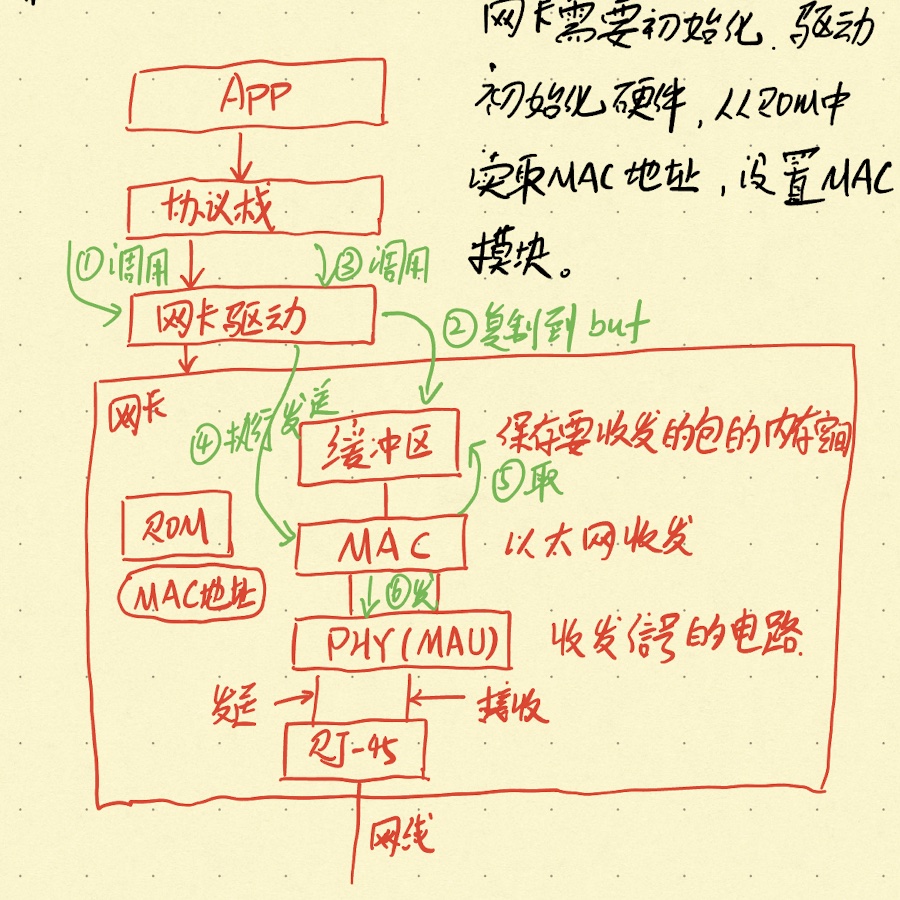 网卡需要初始化.驱动
初始化硬件,从ROM中
读取MAC地址,设置MAC
模块。
App
协议栈
①调用
③调用
网卡驱动
②复制到 buf
网卡
④执行发送
缓冲区
保存要收发的包的内存空间
⑤取
ROM
MAC
以太网收发
MAC地址
⑥发
PHY(MAU)
收发信号的电路.
发送
接收
RJ-45
网线